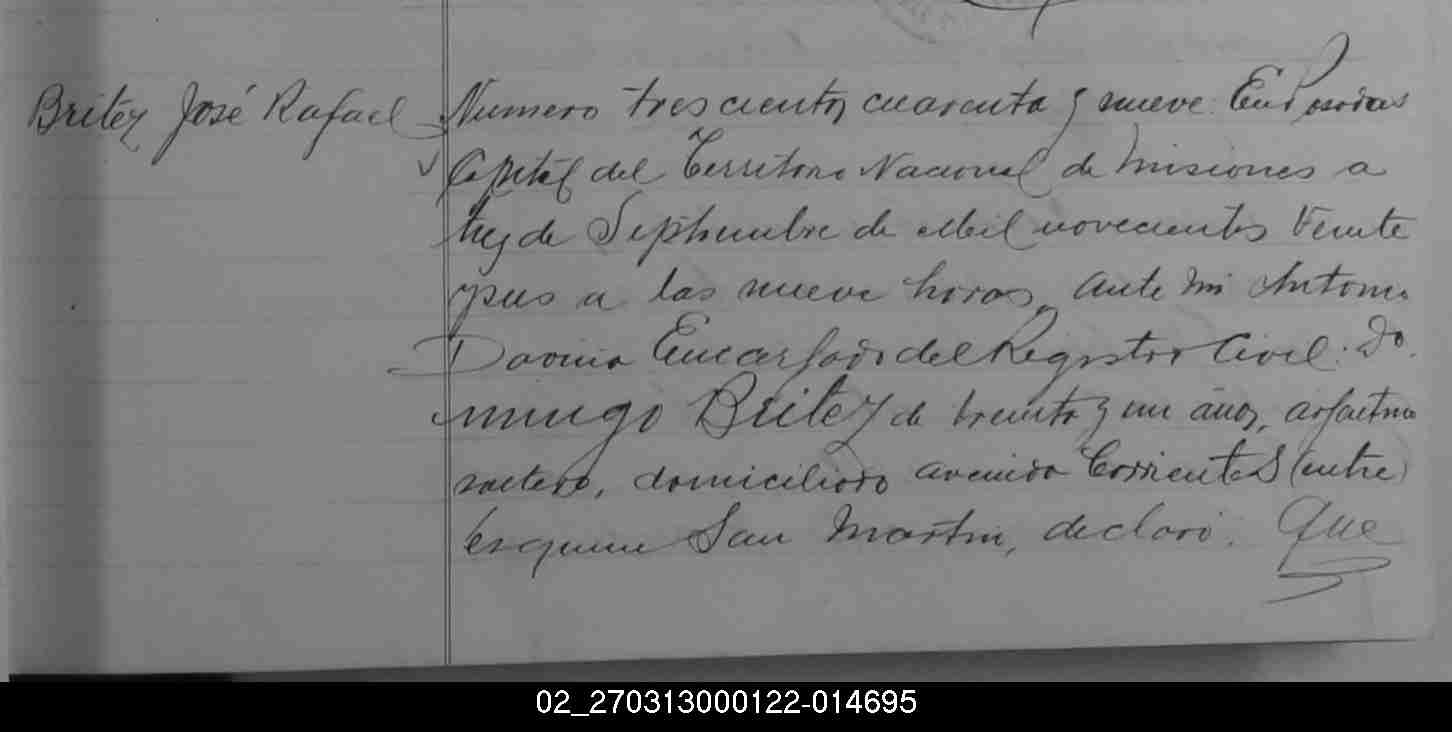 Britez José Rafael
Numero trescientos cuarenta y nueve. En Posadas
Capital del Territorio Nacional de Misiones a
tres de Septiembre de Mil novecientos veinte
a las nueve horas, ante mi Antonio
Encargado del Registro Civil: Do
mingo Britez de treinta y un años, argentino
soltero, domiciliado avenida Corrientes (entre)
esquina San Martin, declaró: Que
02_270313000122-014695